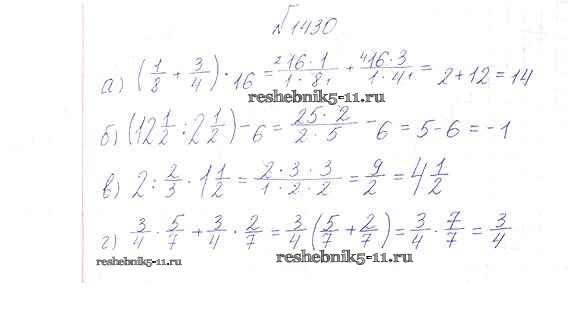 №1430
а) (1/8 + 3/4) · 16 = 16·1/1·8 + 16·3/1·4 = 2 + 12 = 14
reshebnik5-11.ru
б) (12 1/2 : 2 1/2) - 6 = 25·2/2·5 - 6 = 5 - 6 = -1
в) 2 : 2/3 · 1 1/2 = 2·3·3/1·2·2 = 9/2 = 4 1/2
г) 3/4 · 5/7 + 3/4 · 2/7 = 3/4 (5/7 + 2/7) = 3/4 · 7/7 = 3/4
reshebnik5-11.ru reshebnik5-11.ru